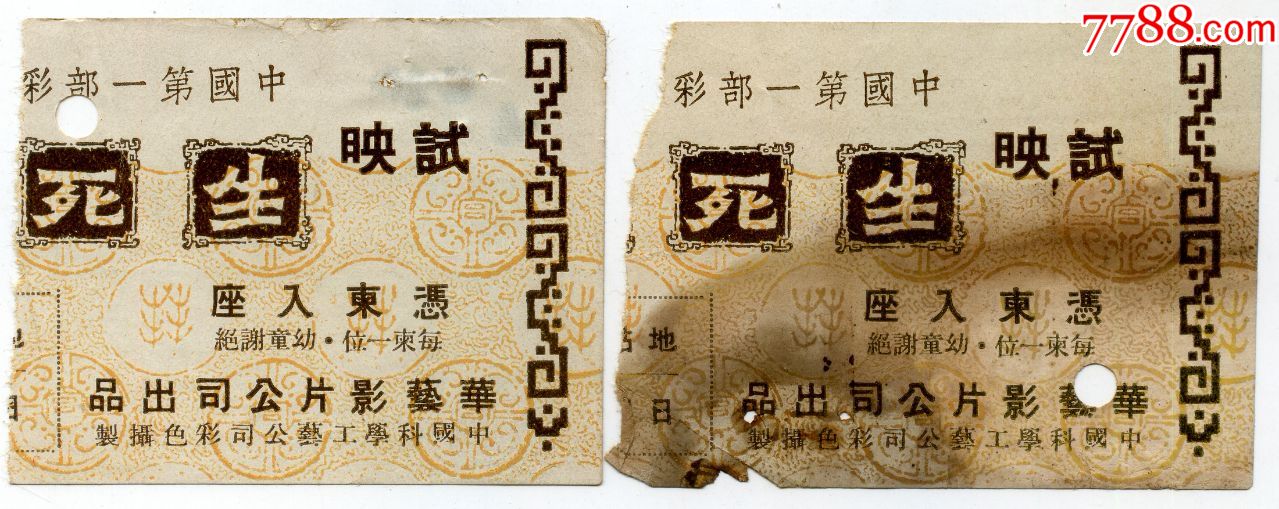 7788.com
中國第一部彩
試映
生死
憑柬入座
每柬一位・幼童謝絕
華藝影片公司出品
中國科學工藝公司彩色攝製
中國第一部彩
試映
生死
憑柬入座
每柬一位・幼童謝絕
地
日
華藝影片公司出品
中國科學工藝公司彩色攝製